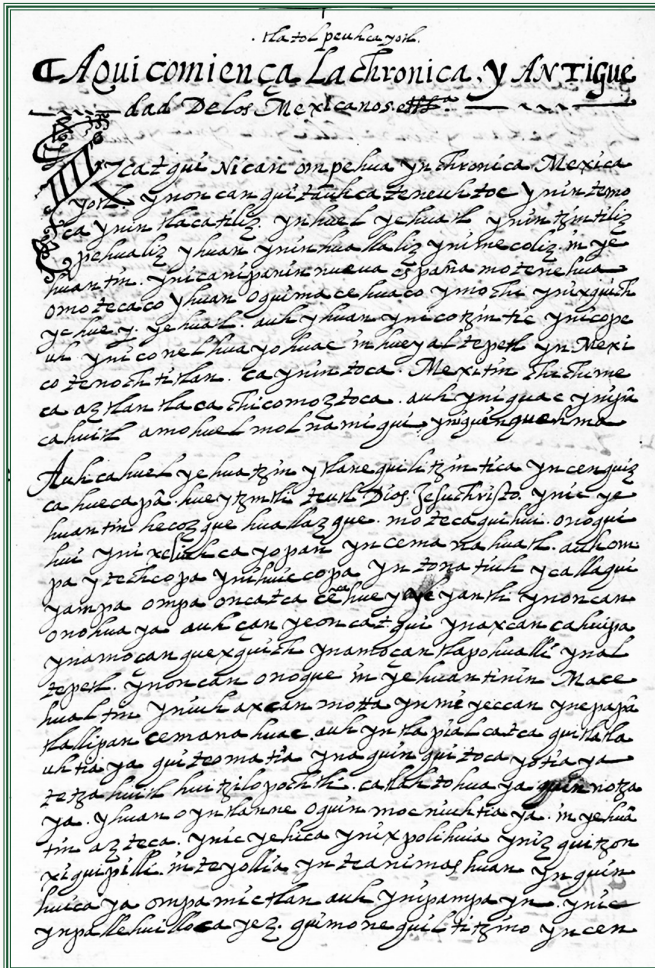 tlatolpeuhcayotl.
Aqui comiença La chronica, y ANTIGUE
dad De los Mexicanos. etta.
Izcatqui Nican ompehua yn chronica Mexica
yotl ynoncan quitauhcateneuhtoc ynintemo
ca ynin tlacatiliz ynhuel yehuatl ynintzintiliz
pehualiz yhuan yninhuallaliz ynimecoliz. in ye
huantin. ynicanipanin nueva españa motenehua
omotecaco yhuan oquimacehuaco ymochi ynixquich
yehuey. yehuatl. auh yhuan ynicotzintic ynicope
uh ynic onelhuayohuac in huey altepetl yn Mexi
co tenochtitlan. ca ynintoca. Mexitin chichime
ca aztlan tlaca chicomoztoca. auh yniquac yniquĩ
cahuitl amohuel molnamiqui yniquenquenma
Auh cahuel yehuatzin ytlanequilitzintica yn cenquiz
cahuecapã. huey tzintli teutl Dios. Jesuchristo. ynic ye
huantin hecozque huallazque. motecaquihui. onoqui
hui ynixeliuhcayopan yncemanahuatl. auh om
pa ytechcopa ynihuicopa yn tonatiuh ycallaqui
yampa ompa oncatca ynoncan
onohuaya auh çan yeoncatqui ynaxcan cahuipa
ynamoçanquexquich ynamoçan tlapohualli ynal
tepetl. ynoncan onoque in yehuantinin Mace
hualtin yniuh axcan motta ynmieccan ynepapã
tlallipan cemanahuac. auh yn tlapialcatca quitlatla
uhtiaya quiteomatia ynaquin quitocayotiaya
tetzahuitl huitzilopochtli. catlahtohuaya quinnotza
ya. yhuan oyntlanne oquin mocniuhtiaya. in yehuã
tin azteca. ynic yehica ynixpolihuia yniz quitzon
xiquipilli. inteyollia yn teanimas huan ynquin
huicaya ompa mictlan auh ynipampa yn. ynic
ynpallehuillocayez. quimonequiltitzino yn cen